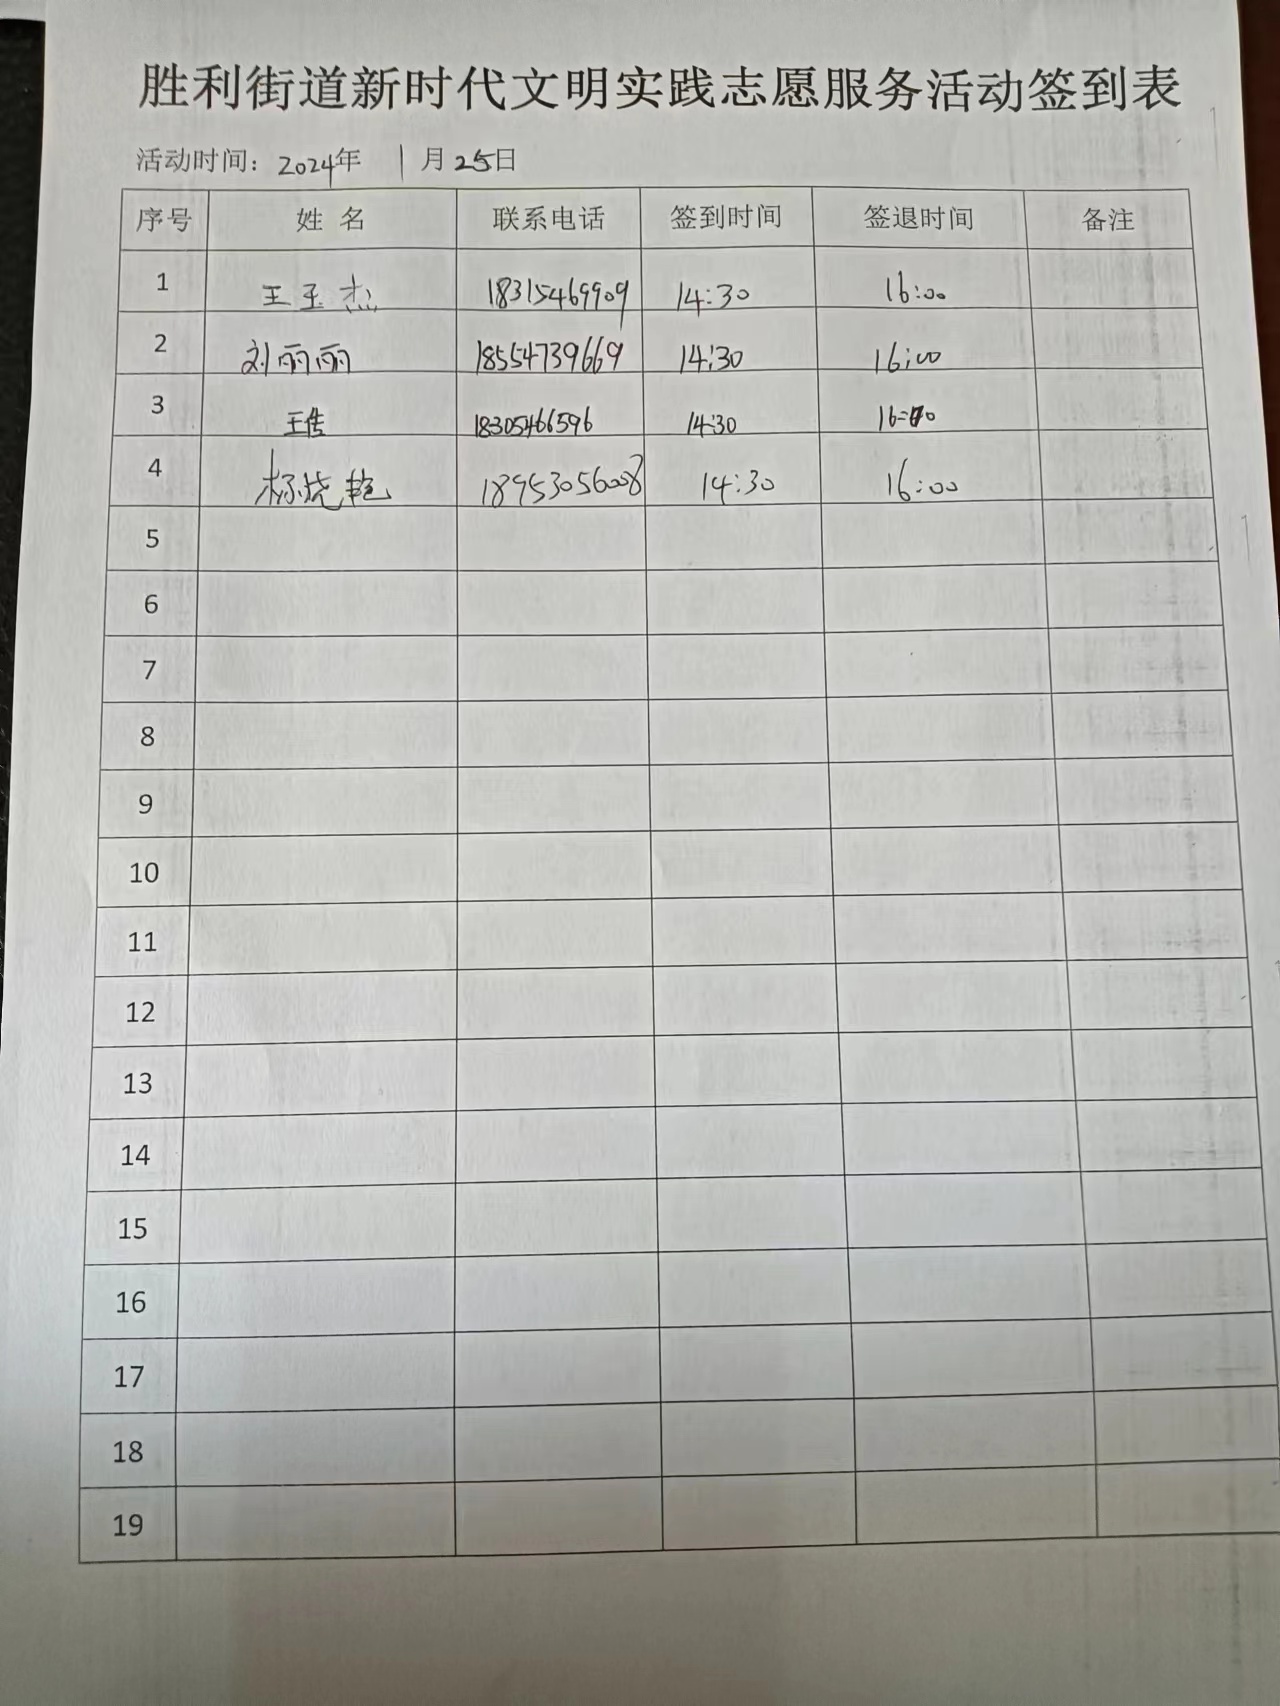 胜利街道新时代文明实践志愿服务活动签到表
活动时间：2024年 1月25日
序号 姓 名 联系电话 签到时间 签退时间 备注
1 王玉杰 18315469909 14:30 16:00
2 刘丽丽 18554739669 14:30 16:00
3 王 18305466596 14:30
4 杨晓艳 18953056008 14:30 16:00
5
6
7
8
9
10
11
12
13
14
15
16
17
18
19